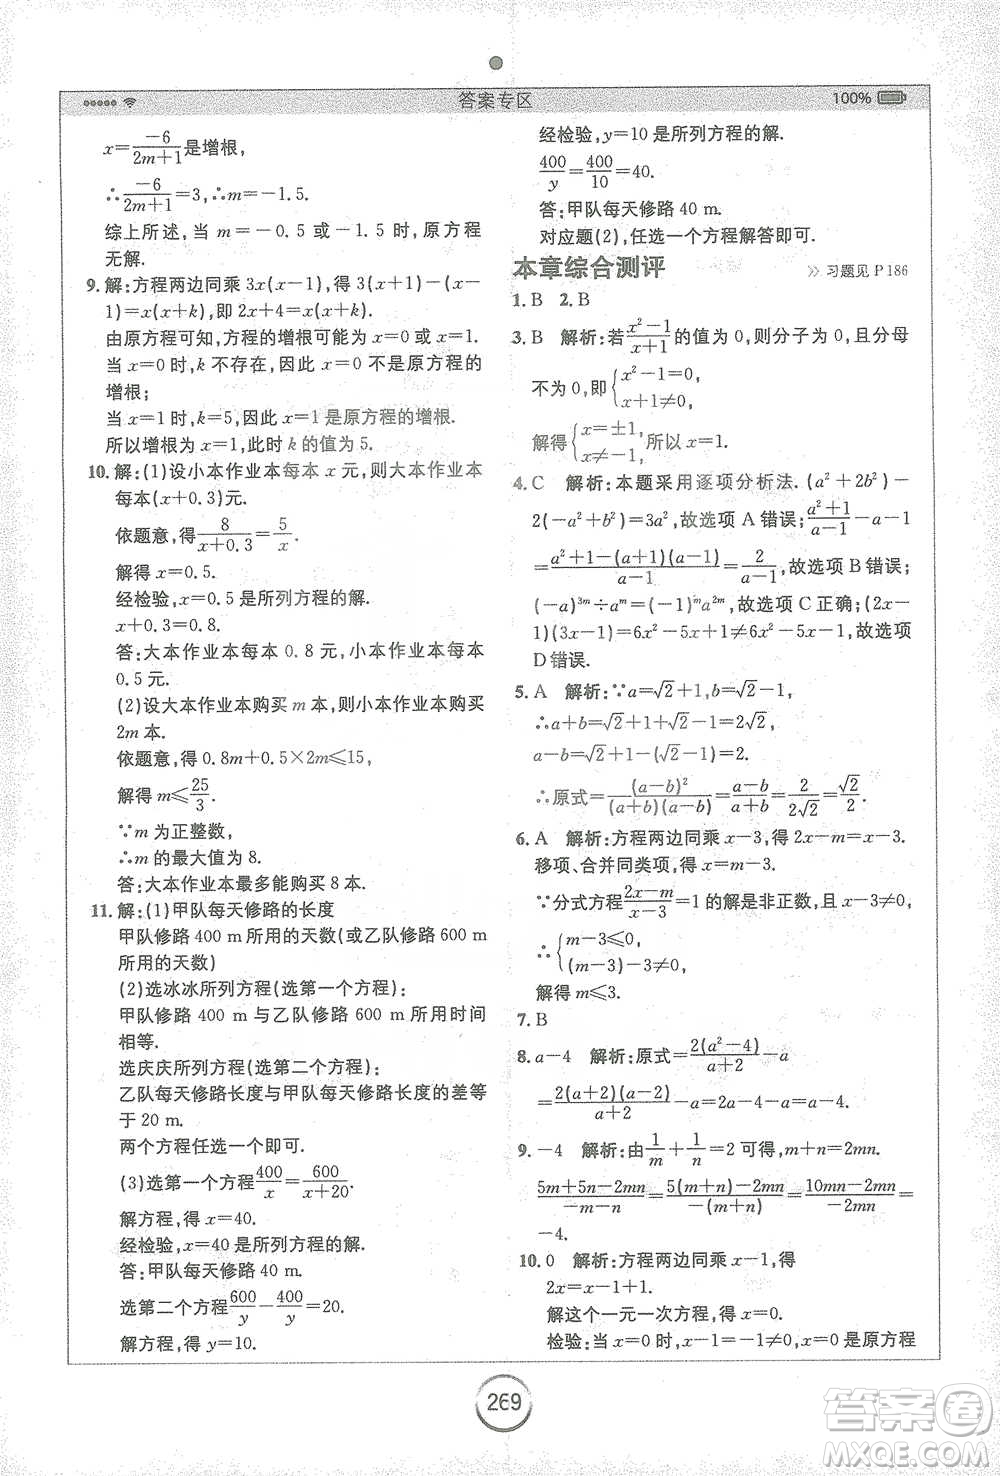 答案专区
100%
x=\frac{-6}{2m+1}是增根,
∴\frac{-6}{2m+1}=3,∴m=-1.5.
综上所述,当 m=-0.5 或-1.5 时,原方程
无解.
9. 解:方程两边同乘 3x(x-1),得 3(x+1)-(x-
1)=x(x+k),即 2x+4=x(x+k).
由原方程可知,方程的增根可能为 x=0 或 x=1.
当 x=0 时,k 不存在,因此 x=0 不是原方程的
增根;
当 x=1 时,k=5,因此 x=1 是原方程的增根.
所以增根为 x=1,此时 k 的值为 5.
10. 解:(1)设小本作业本每本 x 元,则大本作业本
每本(x+0.3)元.
依题意,得\frac{8}{x+0.3}=\frac{5}{x}.
解得 x=0.5.
经检验,x=0.5 是所列方程的解.
x+0.3=0.8.
答:大本作业本每本 0.8 元,小本作业本每本
0.5 元.
(2)设大本作业本购买 m 本,则小本作业本购买
2m 本.
依题意,得 0.8m+0.5×2m≤15,
解得 m≤\frac{25}{3}.
∵m 为正整数,
∴m 的最大值为 8.
答:大本作业本最多能购买 8 本.
11. 解:(1)甲队每天修路的长度
甲队修路 400 m 所用的天数(或乙队修路 600 m
所用的天数)
(2)选冰冰所列方程(选第一个方程):
甲队修路 400 m 与乙队修路 600 m 所用时间
相等.
选庆庆所列方程(选第二个方程):
乙队每天修路长度与甲队每天修路长度的差等
于 20 m.
两个方程任选一个即可.
(3)选第一个方程\frac{400}{x}=\frac{600}{x+20}.
解方程,得 x=40.
经检验,x=40 是所列方程的解.
答:甲队每天修路 40 m.
选第二个方程\frac{600}{y}-\frac{400}{y}=20.
解方程,得 y=10.
经检验,y=10 是所列方程的解.
\frac{400}{y}=\frac{400}{10}=40.
答:甲队每天修路 40 m.
对应题(2),任选一个方程解答即可.
本章综合测评 》习题见 P 186
1. B 2. B
3. B 解析:若\frac{x²-1}{x+1}的值为 0,则分子为 0,且分母
不为 0,即{x²-1=0,
x+1≠0,
解得{x=±1,
x≠-1,所以 x=1.
4. C 解析:本题采用逐项分析法.(a²+2b²)-
2(-a²+b²)=3a²,故选项 A 错误;\frac{a²+1}{a-1}-a-1
=\frac{a²+1-(a+1)(a-1)}{a-1}=\frac{2}{a-1},故选项 B 错误;
(-a)^{3m}÷a^m=(-1)^m a^{2m},故选项 C 正确;(2x-
1)(3x-1)=6x²-5x+1≠6x²-5x,故选项
D 错误.
5. A 解析:∵a=√2+1,b=√2-1,
∴a+b=√2+1+√2-1=2√2,
a-b=√2+1-(√2-1)=2.
∴原式=\frac{(a-b)²}{(a+b)(a-b)}=\frac{a-b}{a+b}=\frac{2}{2√2}=\frac{√2}{2}.
6. A 解析:方程两边同乘 x-3,得 2x-m=x-3.
移项、合并同类项,得 x=m-3.
∵分式方程\frac{2x-m}{x-3}=1 的解是非正数,且 x-3≠0,
∴{m-3≤0,
(m-3)-3≠0,
解得 m≤3.
7. B
8. a-4 解析:原式=\frac{2(a²-4)}{a+2}-a
=\frac{2(a+2)(a-2)}{a+2}-a=2a-4-a=a-4.
9. -4 解析:由\frac{1}{m}+\frac{1}{n}=2 可得,m+n=2mn,
\frac{5m+5n-2mn}{-m-n}=\frac{5(m+n)-2mn}{-(m+n)}=\frac{10mn-2mn}{-2mn}=
-4.
10. 0 解析:方程两边同乘 x-1,得
2x=x-1+1.
解这个一元一次方程,得 x=0.
检验:当 x=0 时,x-1=-1≠0,x=0 是原方程
269
答案卷
MXQE.COM